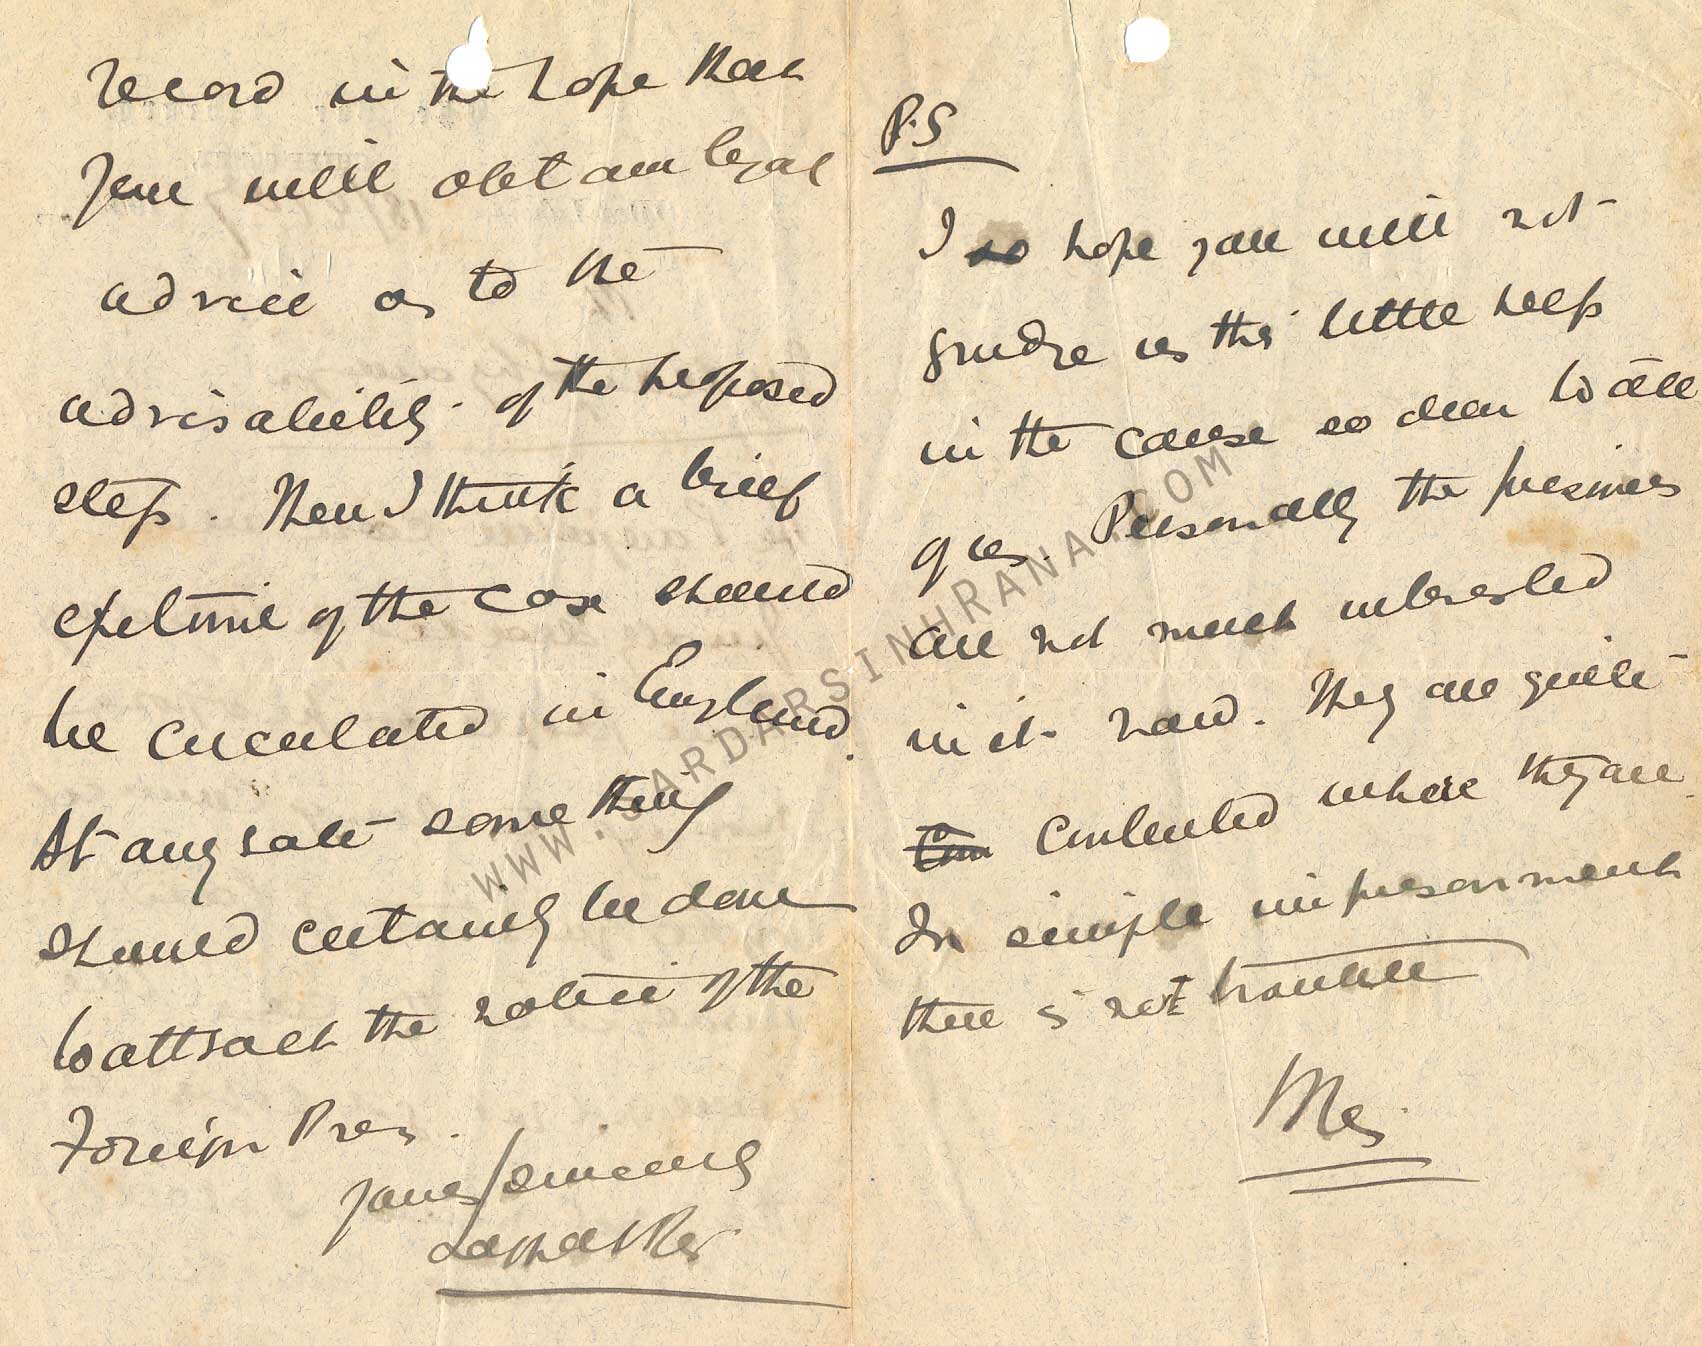 record in the hope that
you will obtain legal
advice as to the
advisability of the proposed
step. Then I think a brief
epitome of the case should
be circulated in England.
At any rate something
should certainly be done
to attract the notice of the
Foreign Press.
Yours sincerely
P.S
I so hope you will not
grudge us this little help
in the cause so dear to all
of us. Personally the prisoners
are not much interested
in it now. They are quite
contented where they are.
In simple imprisonment
there is not trouble
WWW.SARDARSINHRANA.COM